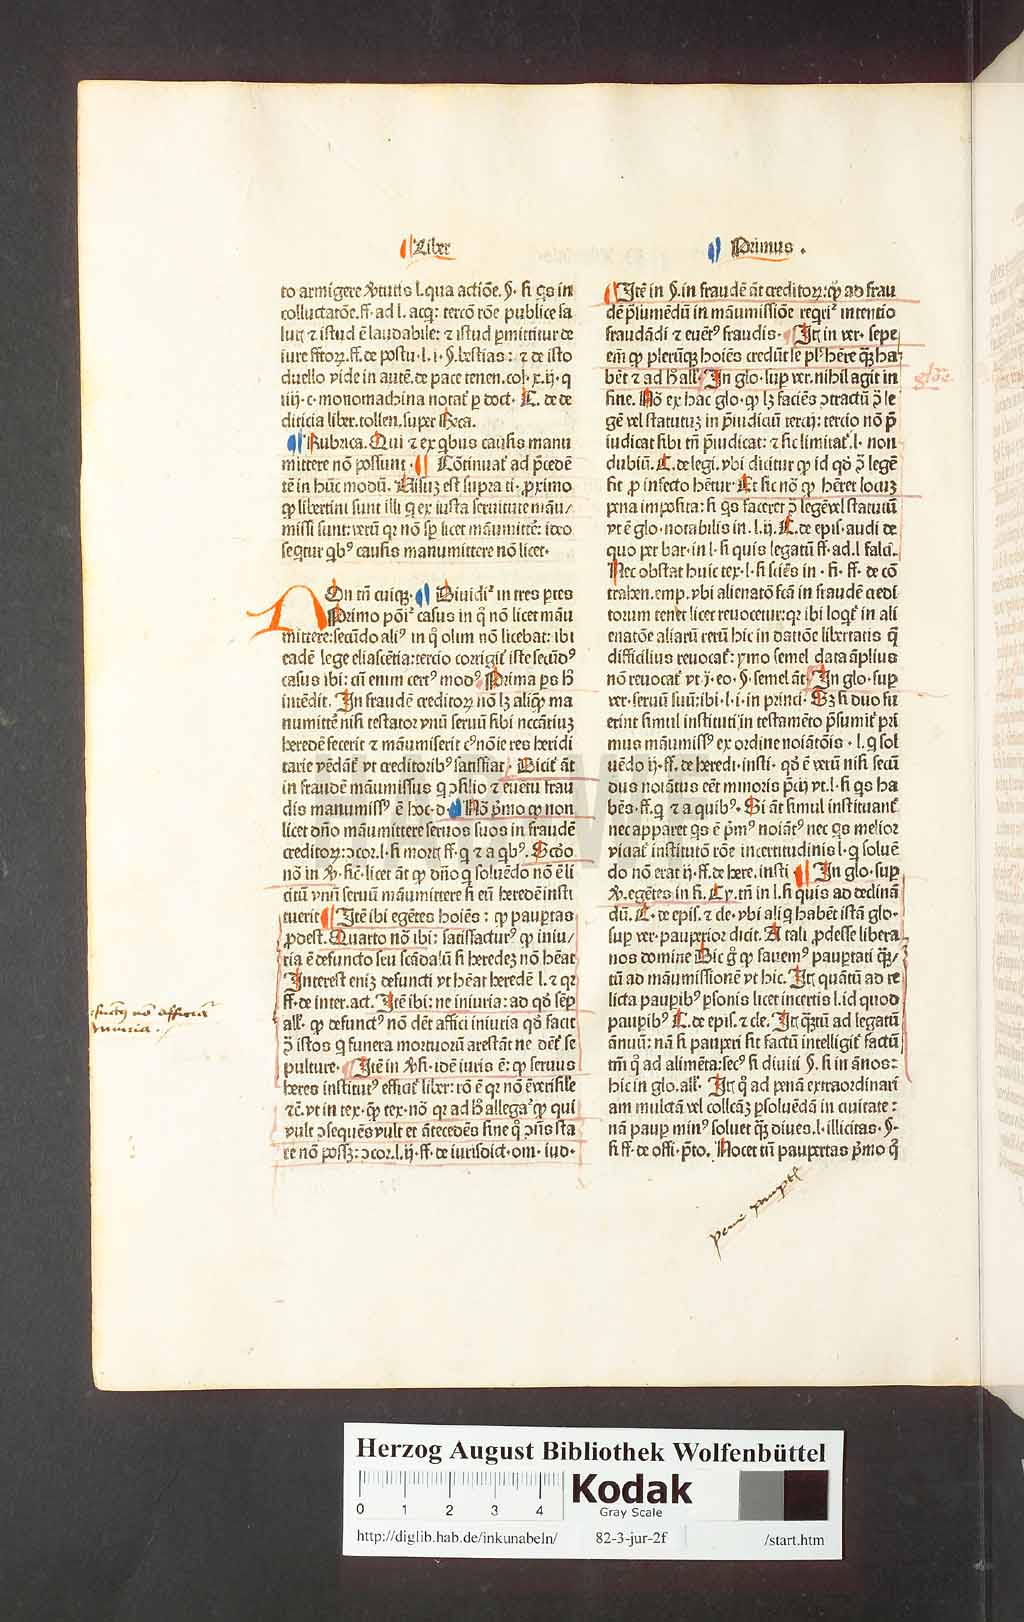 Liber
Primus .
to armigere ꝟtutis l. qua actiõe. §. si q̃s in
colluctatõe. ff. ad l. acq̃: tercõ rõe publice sa
lutꝭ ⁊ istud ẽ laudabile: ⁊ istud ꝑmittitur de
iure ff. de postu. l. i. §. bestias: ⁊ de isto
duello vide in autẽ. de pace tenen. col. x. ij. q
iiij. c. monomachina notat̃ ꝑ doct. C. de de
diticia liber. tollen. super Rubrica.
Rubrica. Qui ⁊ ex q̃bus causis manu
mittere nõ possunt. Cõtinuat̃ ad p̃cedẽ
tẽ in hũc modũ. Visuʒ est supra ti. ꝓximo
ꝙ libertini sunt illi q̃ ex iusta seruitute mãu/
missi sunt: verũ qꝛ nõ sꝑ licet mãumittẽ: ideo
seq̃tur q̃bꝰ causis manumittere nõ licet.
On tñ cuiqꝫ. Diuidiꝰ in tres ꝑtes
Primo põiꝰ casus in q̃ nõ licet mãu
mittere: secũdo aliꝰ in q̃ olim nõ licebat: ibi
eadẽ lege eliasẽtia: tercio corrigit̃ iste secũdꝰ
casus ibi: cũ enim certꝰ modꝰ Prima ꝑs
intẽdit. In fraudẽ creditoꝝ nõ lʒ aliq̃ꝫ ma
numittẽ nisi testator vnũ seruũ sibi nccãtiuʒ
heredẽ fecerit ⁊ mãumiserit nõie res heridi
tarie vẽdãt̃ vt creditoribꝰ satisfiat. Dicit̃ ãt
in fraudẽ mãumissus q̃ ꝯsilio ⁊ euẽtu frau
dis manumissꝰ ẽ hoc. d. Nõ p̃mo ꝙ non
licet dño mãumittere seruos suos in fraudẽ
creditoꝝ: ꝯcor. l. si ff. q̃ ⁊ a q̃bꝰ. Scõo
nõ in licet ãt ꝙ dño q̃ soluẽdo nõ ẽ li
citũ vnũ seruũ mãumittere si eũ heredẽ insti
tuerit Itẽ ibi egẽtes hoiẽs: ꝙ pauꝑtas
ꝓdest. Quarto nõ ibi: satisfacturꝰ ꝙ iniu/
ria ẽ defuncto seu scãdalũ si heredeʒ nõ hẽat
Interest eniʒ defuncti vt hẽat heredẽ l. ⁊ qꝛ
ff. de inter. act. Itẽ ibi: ne iniuria: ad qõ sẽꝑ
ꝙ defunctꝰ nõ dẽt affici iniuria qõ facit
ꝯ̃ istos q̃ funera mortuorũ arestãt ne dẽt̃ se
pulture. Itẽ in ꝟsi. idẽ iuris ẽ: ꝙ seruus
heres institutꝰ efficit̃ liber: rõ ẽ qꝛ nõ
⁊c̃. vt in tex. ꝙ̃ tex. nõ. qꝛ ad allegat̃ ꝙ qui
vult ꝯsequẽs vult et ãtecedẽs sine q̃ ꝯñs sta
re nõ possʒ: ꝯcor. l. ij. ff. de iurisdict. om. iud.
Itẽ in §. in fraudẽ ãt creditoꝝ: ꝙ ad frau
dẽ p̃lumẽdũ in mãumissiõe reqriꝰ intentio
fraudãdi ⁊ euẽtꝰ fraudis. Itẽ in ver. sepe
em̃ ꝙ plerũqꝫ hoiẽs credũt se plꝰ hẽre q̃ʒ ha
bẽt ⁊ ad In glo. suꝑ ver. nihil agit in
fine. Nõ ex hac glo. ꝙ lʒ faciẽs ꝯtractũ ꝯ̃ le
gẽ vel statutuʒ in p̃iudiciũ tercij: tercio nõ p̃
iudicat sibi tñ p̃iudicat: ⁊ sic limitat̃. l. non
dubiũ. C. de legi. vbi dicitur ꝙ id qõ ꝯ̃ legẽ
fit ꝓ infecto hẽtur. Et sic nõ ꝙ hẽret locuʒ
pena imposita: si q̃s faceret ꝯ̃ legẽ vel statutũ
vt ẽ glo. notabilis in. l. ij. C. de epis. audi de
quo per bar. in l. si quis legatũ ff. ad. l. falci.
Nec obstat huic tex. l. si sciẽs in. fi. ff. de cõ
traben. emp. vbi alienatõ fcã in fraudẽ aedi
torum tenet licet reuocetur: qꝛ ibi loqt̃ in ali
enatõe aliarũ rerũ hic in datiõe libertatis q̃
difficilius reuocat̃: ymo semel data ãplius
nõ reuocat̃ vt j̃. eo. §. semel ãt. In glo. suꝑ
ver. seruũ suũ: ibi. l. i. in princi. Sʒ si duo fu
erint simul instituti in testamẽto p̃sumit̃ pri
mus mãumissꝰ ex ordine noiãtõis. l. q̃ sol
uẽdo ij. ff. de heredi. insti. qõ ẽ verũ nisi secũ
dus noiatus eẽt minoris p̃cij vt. l. si q̃s ha
bẽs. ff. q̃ ⁊ a quibꝰ. Si ãt simul instituant̃
nec apparet q̃s ẽ p̃mꝰ noiãtꝰ nec q̃s melior
viciat̃ institutõ rõe incertitudinis l. q̃ soluẽ
do nõ erat ij. ff. de here. insti In glo. suꝑ
ꝟ. egẽtes in fi. Cy. tñ in l. si quis ad dedinã
dũ. C. de epis. ⁊ cle. vbi aliq̃ habẽt istã glo.
suꝑ ver. pauperior dicit. A tali ꝓdesse libera
nos domine Dic g̃ ꝙ fauemꝰ pauꝑtati q̃ʒ/
tũ ad mãumissionẽ vt hic. Itẽ quãtũ ad re
licta pauꝑibꝰ ꝑsonis licet incertis l. id quod
pauꝑibꝰ C. de epis. ⁊ cle. Itẽ q̃ʒtũ ad legatũ
ãnuũ: nã si pauꝑi fit factũ intelligit̃ factũ
tm̃ q̃ ad alimẽta: secꝰ si diuiti §. si in ãnos:
hic in glo. Itẽ q̃ ad penã extraordinari
am mulctã vel collcãʒ ꝑsoluẽdã in ciuitate:
nã pauꝑ minꝰ soluet q̃ʒ diues. l. illicitas. §.
fi ff. de offi. p̃to. Nocet tñ pauꝑtas p̃mo q̃
glõe.
Herzog August Bibliothek Wolfenbüttel
0 1 2 3 4
Kodak
Gray Scale
http://diglib.hab.de/inkunabeln/ 82-3-jur-2f /start.htm